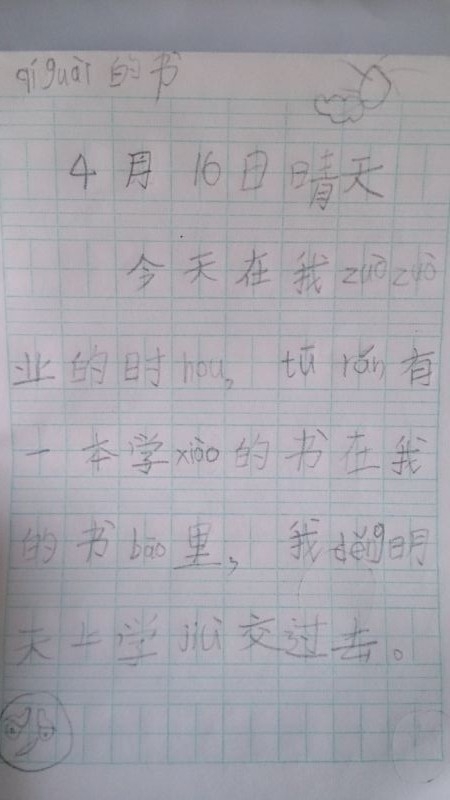 qí guài 的书
4月16日晴天
今天在我zuò zuò
业的时hou，tū rán有
一本学xiào的书在我
的书bāo里，我děng明
天上学jiù交过去。